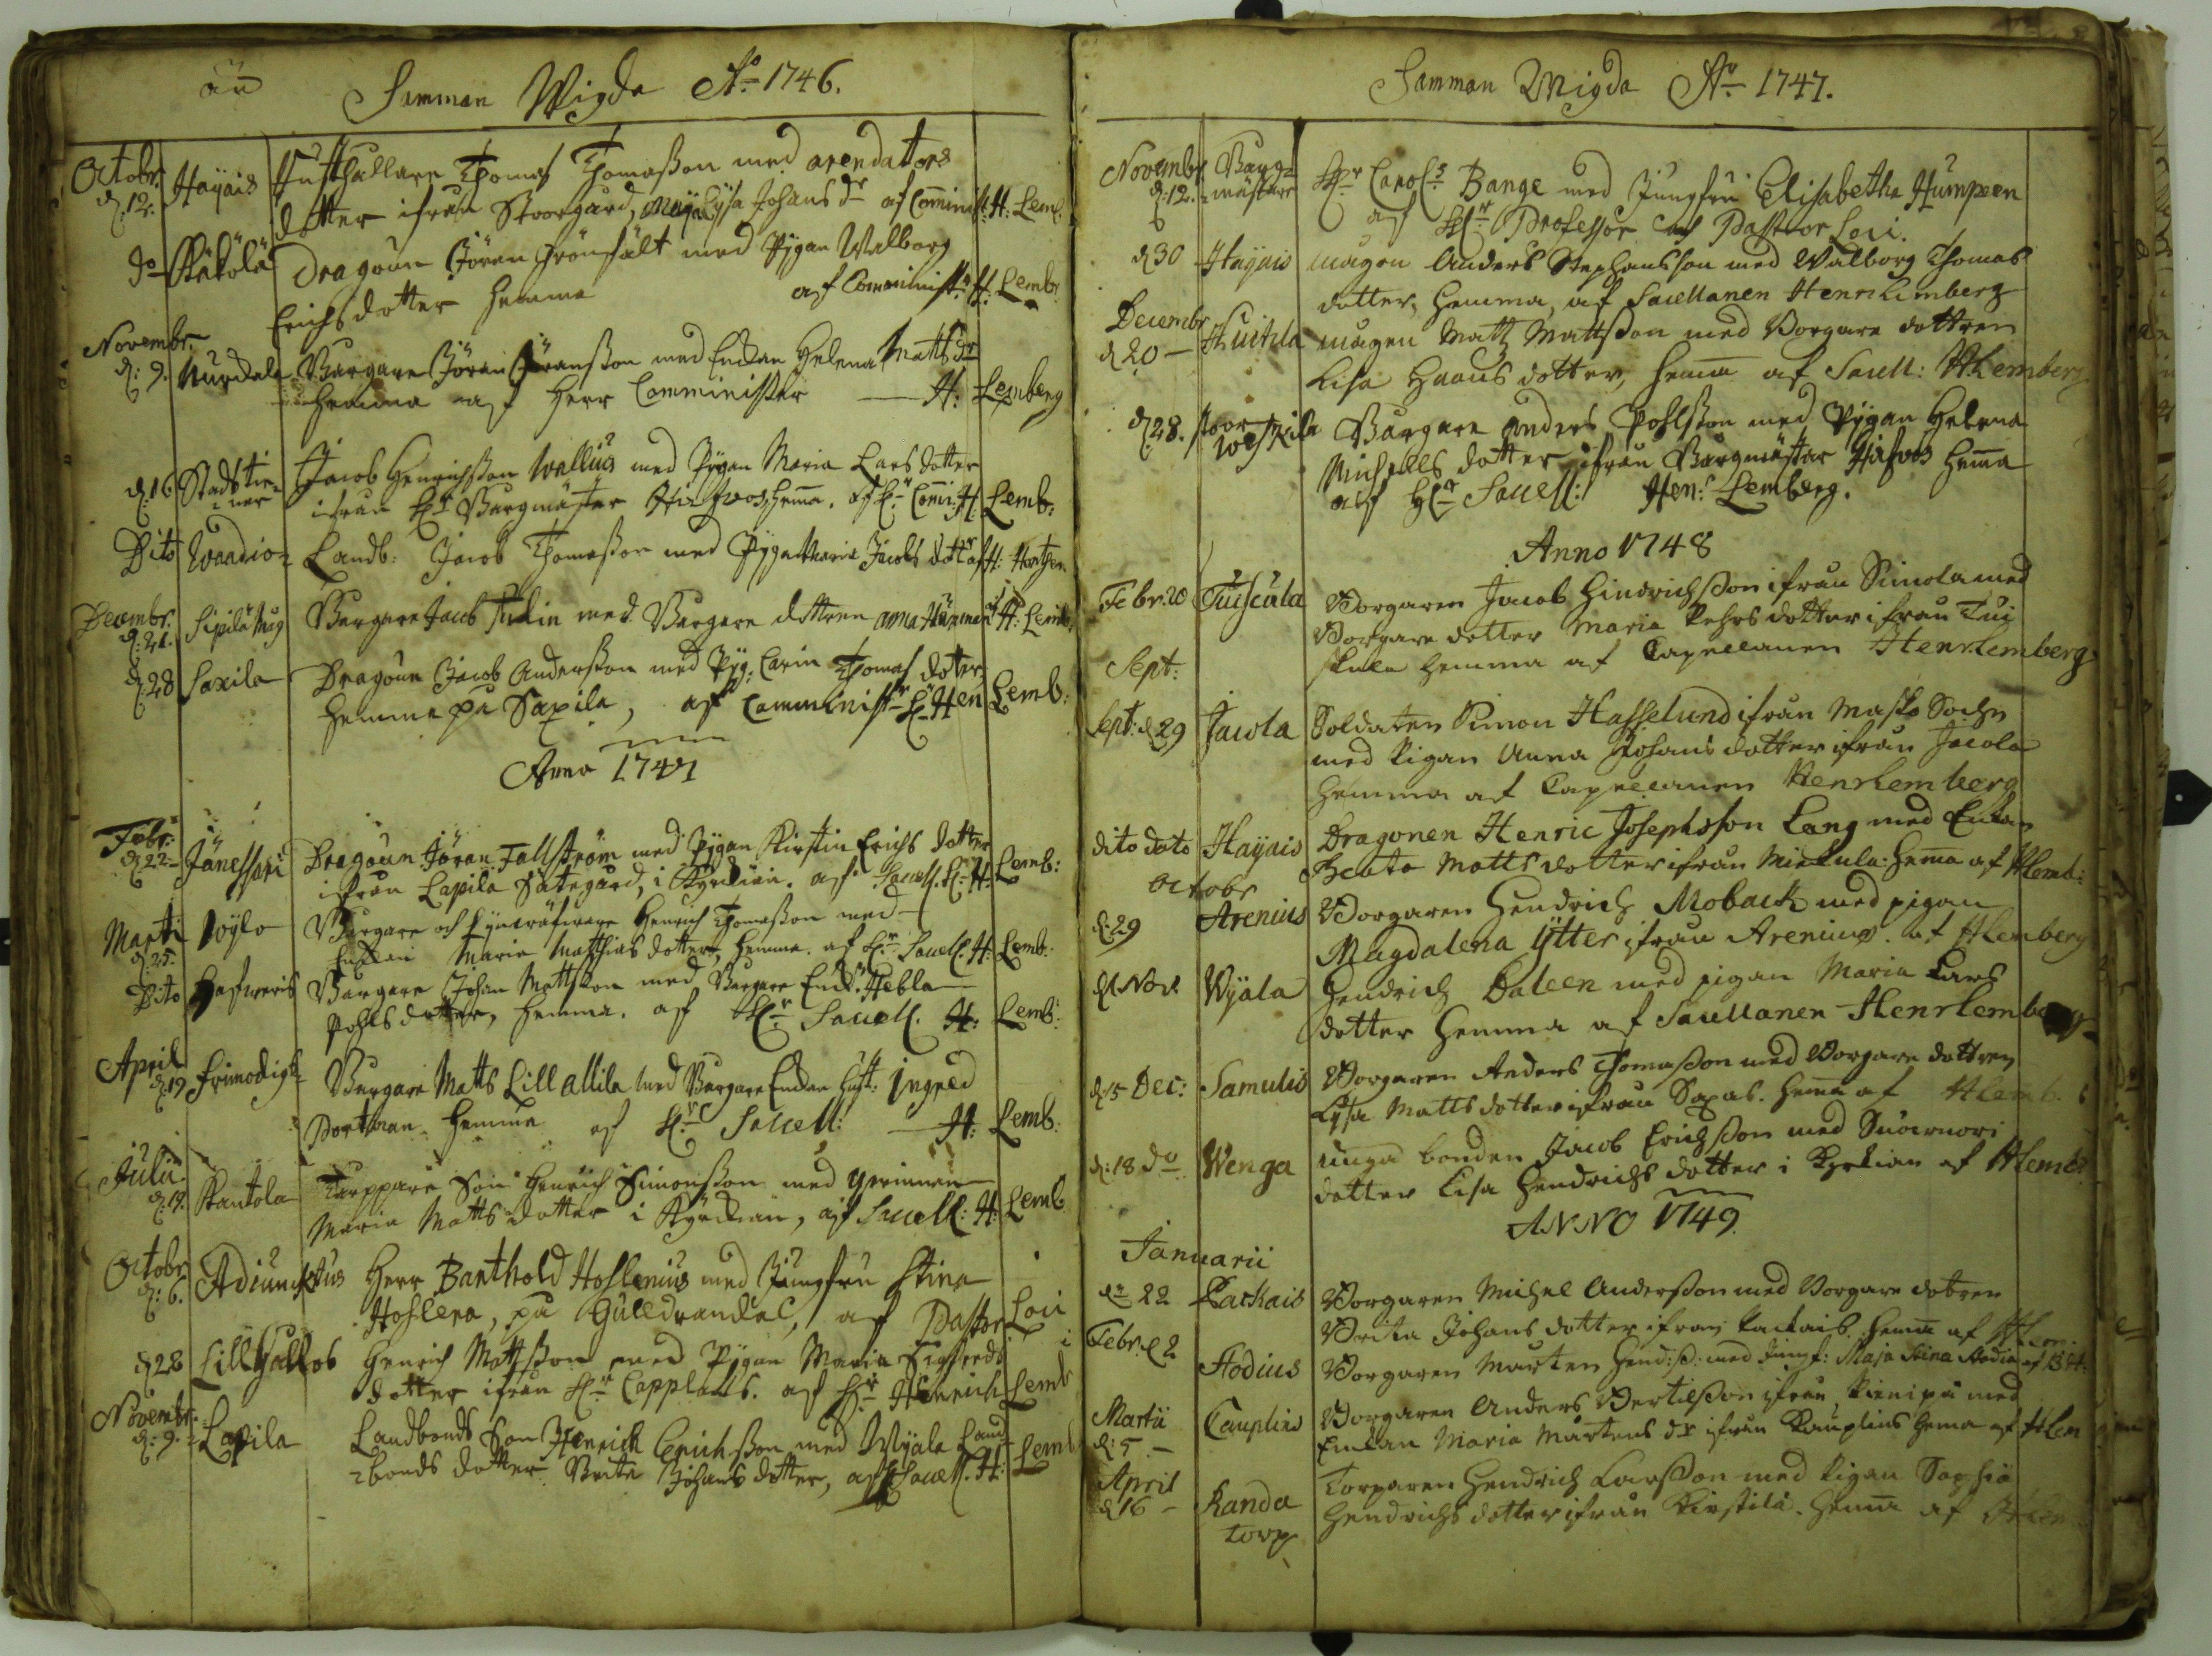 Samman Wigda Ao 1746.
Octobr. d. 12. Hayais Thomas Thomasson med arendators
dotter ifrån Storgård, Maja Lysa Johans dr af Comminist. H. Lemb.
do Käkölä Dragoun Jöran Grönfält med Pygan Walborg
Erichsdotter hemma af Comminist. H. Lemb.
Novembr.
d. 9. Nurdala Burgare Jöran Jöransson med Enckan Helena Matts dr
hemma af Herr Comminister H: Lemberg
d. 16 Stads Jacob Henrichsson Wallius med Pygan Maria Lars dotter
ifrån Hr Burgmäster hemma. af Hr Comi: H. Lemb:
Dito Landb: Jacob Thomasson med Pygan Maria Jacobs dotter af H:
Decembr. d. 21. Sipilä Burgare Jacob med Burgare dottren Anna H: Lemb:
d. 28 Saxila Dragoun Jacob Andersson med Pyg: Carin Thomas doter
hemma på Saxila, af Comminist. Hr Hen Lemb:
Anno 1747
Febr: d. 22 Jänessari Dragoun Jöran Fallström med Pygan Kirstin Erichs dotter
ifrån Lapila Sätegård, i Kyrckian. af Sacell. Hr H. Lemb:
Marti d. 25. Burgare och Henrich Thomasson med
Enckan Maria Matthias dotter, hemma. af Hr Sacell. H. Lemb.
Dito Burgare Johan Mattsson med Burgare Enck. Hebla
Pohls dotter, hemma. af Hr Sacell. H: Lemb:
April d. 19 Frimodigh Burgare Matts Lill Allila med Burgare Enckan hust: Ingred
Portman hemma af Hr Sacell: H: Lemb:
Julii d. 9. Kantola Torppare Son Henrich Simonsson med qwinnan
Maria Matts dotter i Kyrckian, af Sacell: H: Lemb
Octobr d: 6. Adiunctus Herr Barthold Hoflenius med Jungfru Stina
Hoflera, på Gulldrandal, af Pastor Loci
d. 28 Lill Hallos Henrich Mattsson med Pygan Maria Sigfreds
dotter ifrån Hr Capplans. af Hr Henrich Lemb
Novembr. d. 9. Lapila Landbonds Son Henrich Erichsson med Wyala Land
bonds dotter Brita Johans dotter, af Sacell. H: Lemb
Samman Wigda Ao 1747.
Novembr d. 12. Burgmästare Hr Carol: Bange med Jungfru Elisabetha Humpeen
af Hr Professor och Pastor Loci.
d 30 Hayais Anders Stephansson med Walborg Thomas
dotter, hemma, af Sacellanen Henr Lemberg
Decembr d 20 Matts Mattsson med Borgare dottren
Lisa Haans dotter, hema af Sacell: H Lemberg
d. 28. Burgare Anders Pohlsson med Pygan Helena
Michells dotter ifrån Burgmästar hema
af Hr Sacell: Hen: Lemberg.
Anno 1748
Febr. 20 Tuiscula Borgaren Jacob Hindrichsson ifrån Simola med
Borgare dotter Maria Pehrs dotter ifrån Tui
skula hemma af Capellanen Henr Lemberg
Sept:
Sept: d 29 Jacola Soldaten Simon Hasselund ifrån Masko Sochn
med Pigan Anna Johans dotter ifrån Jacola
hemma af Capellanen Henr Lemberg
dito dato Hayais Dragonen Henric Josephsson Lang med Enkan
Beata Matts dotter ifrån Mickula. hema af H Lemb:
Octobr
d. 29 Arenius Borgaren Hendrich Moback med pigan
Magdalena Ytter ifrån Arenius. af H Lemberg
d 1 Nov. Wyala Hendrich Daleen med pigan Maria Lars
dotter hemma af Sacellanen Henr Lemberg
d 15 Dec: Samulis Borgaren Anders Thomasson med Borgare dottren
Lysa Matts dotter ifrån Saxas. hema af H Lemb.
d: 18 do Wenga unga bonden Jacob Erichsson med
dotter Lisa Hendrichs dotter i Kyrkian af H Lemb:
ANNO 1749.
Januarii
d 22 Packais Borgaren Michel Andersson med Borgare dotren
Brita Johans dotter ifrån Packais. hema af H Lem.
Febr. d 2 Hodius Borgaren Mårten Hend: S: med Jungf: Maja Stina Hodia af
Martii d: 5 Cauplius Borgaren Anders Bertilsson ifrån med
Enkan Maria Mårtens dr ifrån Kauplius hema af H Lem
April d 16 Randa torp Torparen Hendrich Larsson med Pigan Saphia
Hendrichs dotter ifrån Kirstilä. hema af H Lem